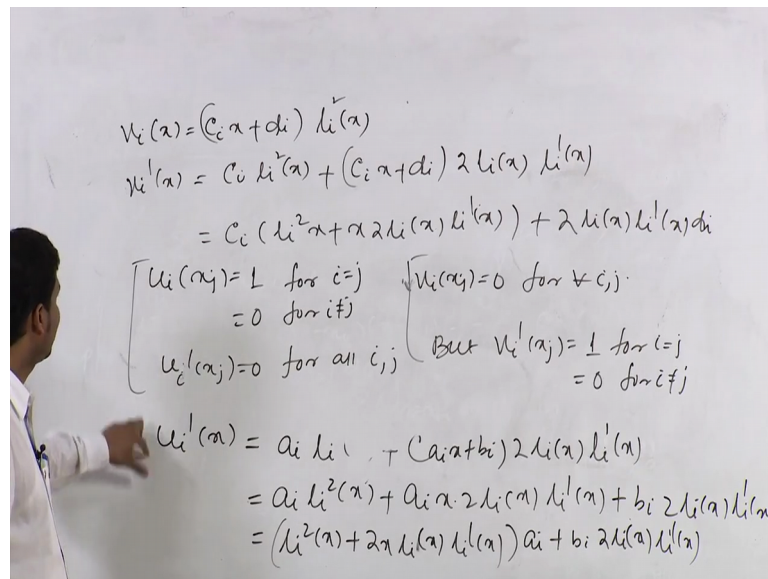 vi(x) = (ci x + di) li²(x)
vi'(x) = ci li²(x) + (ci x + di) 2 li(x) li'(x)
= ci (li² x + x 2 li(x) li'(x)) + 2 li(x) li'(x) di
ui(xj) = 1 for i=j
= 0 for i≠j
ui'(xj) = 0 for all i,j
vi(xj) = 0 for ∀ i,j.
But vi'(xj) = 1 for i=j
= 0 for i≠j
ui'(x) = ai li + (ai x + bi) 2 li(x) li'(x)
= ai li²(x) + ai x · 2 li(x) li'(x) + bi 2 li(x) li'(x
= (li²(x) + 2x li(x) li'(x)) ai + bi 2 li(x) li'(x)